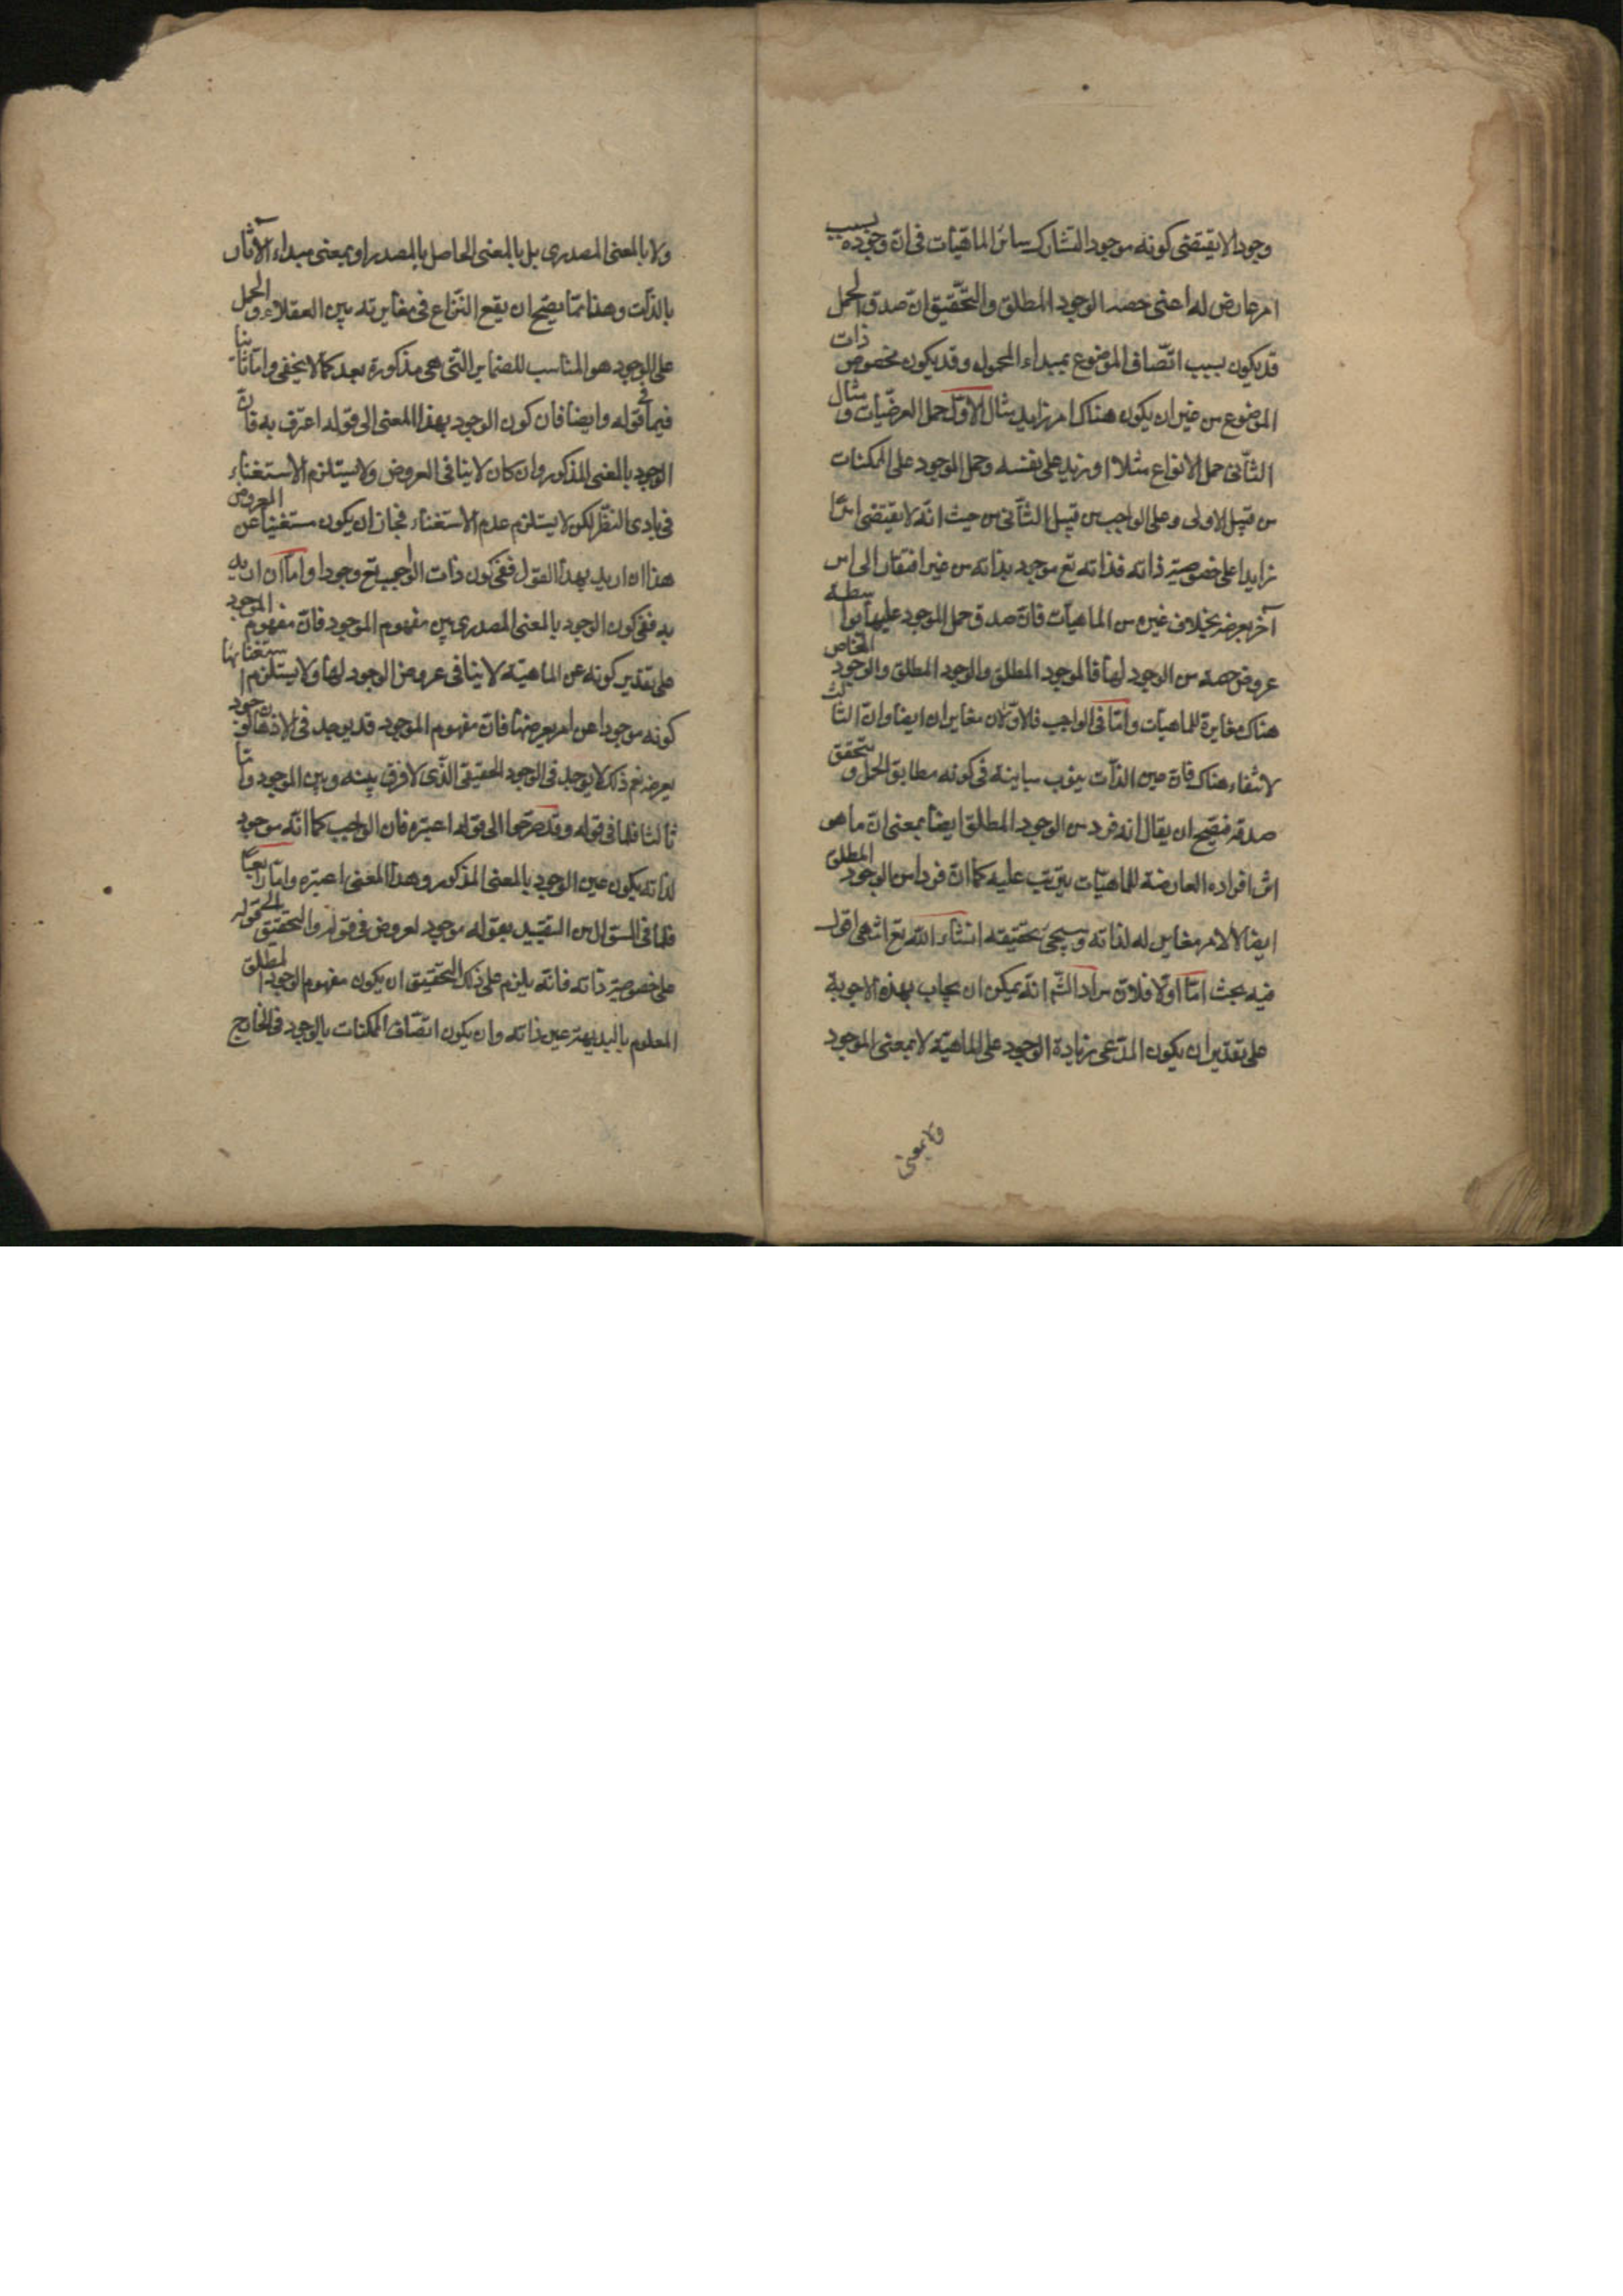 وجودا لا يقتضى كونه موجودا لتشارك سائر الماهيات فى ان وجوده بسبب
امر عارض له اعنى حصه الوجود المطلق والتحقيق ان صدق الحمل
قد يكون بسبب اتصاف الموضوع بمبداء المحمول وقد يكون مخصوص ذات
الموضوع من غير ان يكون هناك امر زايد مثال الاول حمل العرضيات و مثال
الثانى حمل الانواع مثلا او زيد على نفسه وحمل الموجود على الممكنات
من قبيل الاولى وعلى الواجب من قبيل الثانى من حيث انه لا يقتضى امرا
زايدا على خصوصية ذاته فذاته تع موجود بذاته من غير افتقار الى امر
آخر يعرضه بخلاف غيره من الماهيات فان صدق حمل الموجود عليها بواسطة
عروض حصة من الوجود لها فالموجود المطلق والوجود المطلق والوجود الخاص
هناك مغايرة للماهيات واما فى الواجب فالاولان مغايران ايضا وان الثالث
لانتفاء هناك فان عين الذات ينوب منابه فى كونه مطابق الحمل و يتحقق
صدقه فيصح ان يقال انه فرد من الوجود المطلق ايضا بمعنى ان ما هو
اثر افراده العارضة للماهيات يترتب عليه كما ان فردا من الوجود المطلق
ايضا لا لامر مغاير له لذاته وسيجئ تحقيقه انشاء الله تع انتهى اقول
فيه بحث اما اولا فلان مراد الشم انه يمكن ان يجاب بهذه الاجوبة
على تقدير ان يكون المدعى زيادة الوجود على الماهية لا بمعنى الموجود
ولا بمعنى
ولا بالمعنى المصدرى بل بالمعنى الحاصل بالمصدر او بمعنى مبداء الآثار
بالذات وهذا مما يصح ان يقع النزاع فى مغايرته بين العقلاء و الحمل
على الوجود هو المناسب للضماير التى هى مذكورة بعد كما لا يخفى واما ثانيا
فيما فى قوله وايضا فان كون الوجود بهذا المعنى الى قوله اعترف به فان
الوجود بالمعنى المذكور وان كان لا ينافى العروض ولا يستلزم الاستغناء
فى بادى النظر لكن لا يستلزم عدم الاستغناء فجاز ان يكون مستغنيا عن المعروض
هذا ان اريد بهذا القول ففى كون ذات الواجب تع وجودا واما ان اريد
به ففى كون الوجود بالمعنى المصدرى بين مفهوم الموجود فان مفهوم الموجود
على تقدير كونه عن الماهية لا ينافى عروض الوجود لها ولا يستلزم استغنائها
كونه موجودا عن امر يعرضها فان مفهوم الموجود قد يوجد فى الاذهان وجود
يعرضه نعم ذلك لا يوجد فى الوجود الحقيقى الذى لا فرق بينه وبين الموجود واما
ثالثا فلما فى قوله وقد صرحوا الى قوله اعتبره فان الواجب كما انه موجود
لذاته يكون عين الوجود بالمعنى المذكور وهذا المعنى اعتبره واما رابعا
فلما فى السؤال من التقييد بقوله موجود لعروض فى قوله والتحقيق الخ قوله
على خصوصية ذاته فانه يلزم على ذلك التحقيق ان يكون مفهوم الوجود المطلق
المعلوم بالبديهة عين ذاته وان يكون اتصاف الممكنات بالوجود فى الخارج